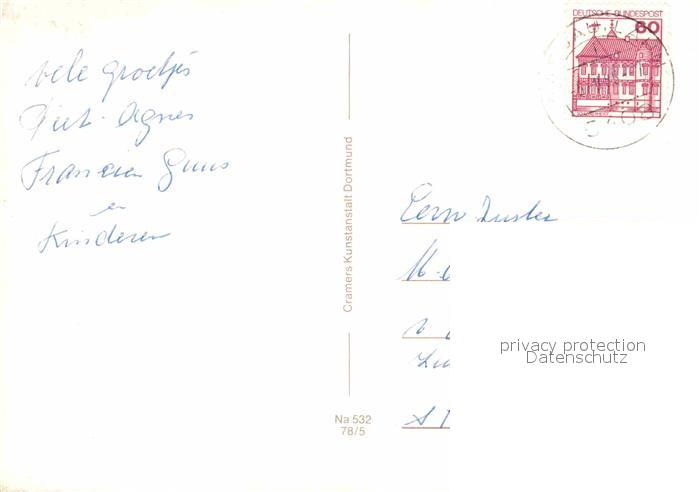 vele groetjes
Piet - Agnes
Francien Guus
en
Kinderen
Cramers Kunstanstalt Dortmund
Na 532
78/5
DEUTSCHE BUNDESPOST
60
5408
Eerw Zuster
privacy protection
Datenschutz